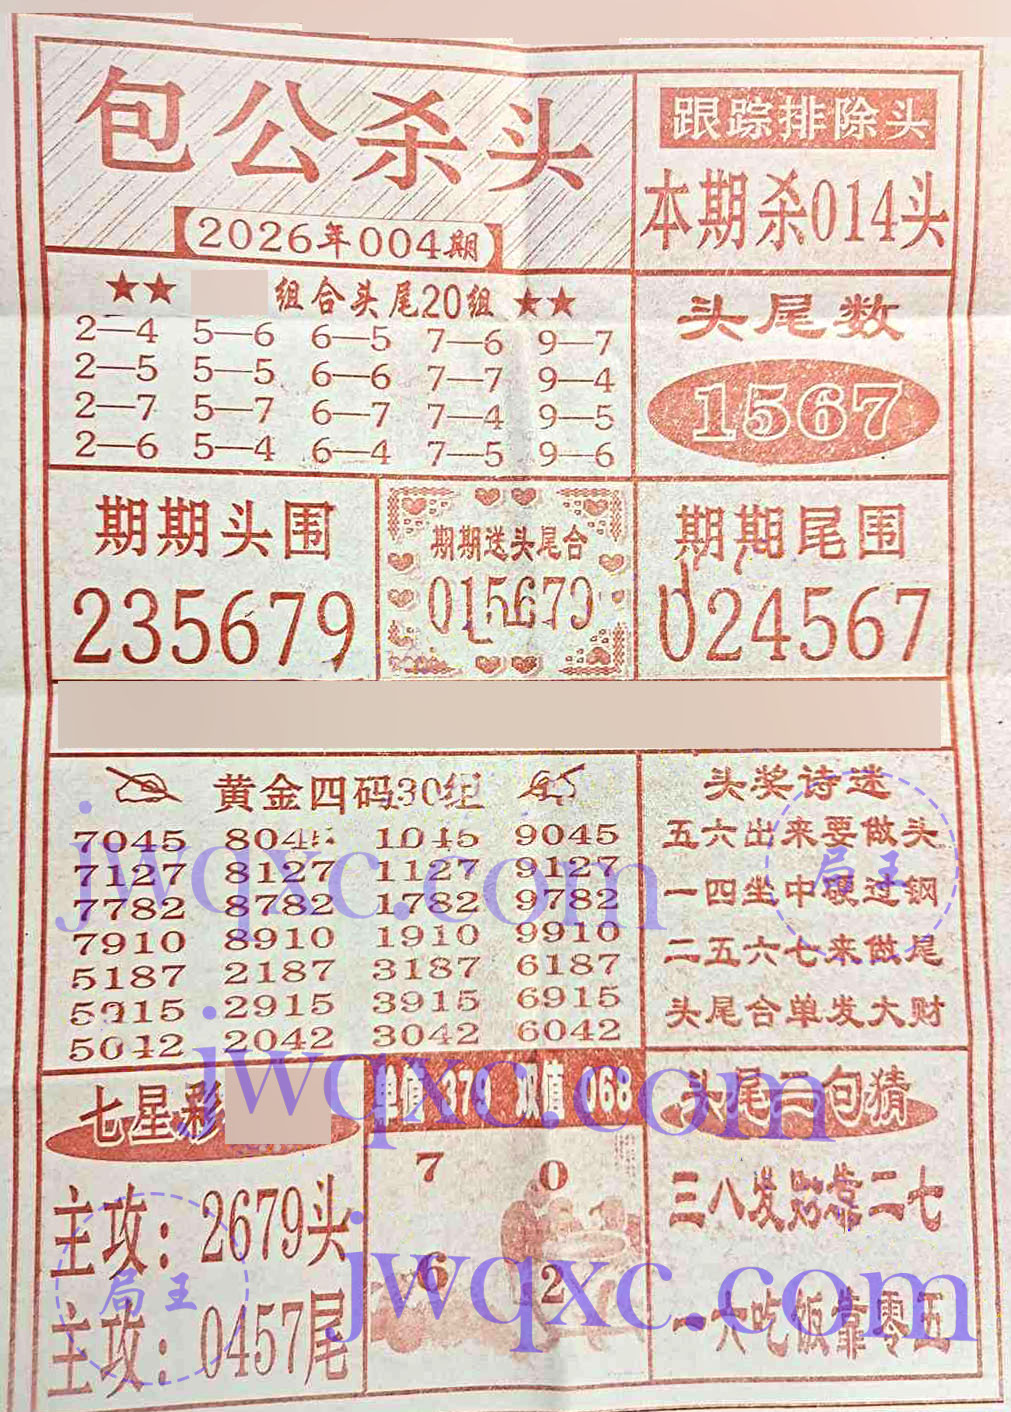 包公杀头
2026年004期
跟踪排除头
本期杀014头
★★ 组合头尾20组 ★★
2—4 5—6 6—5 7—6 9—7
2—5 5—5 6—6 7—7 9—4
2—7 5—7 6—7 7—4 9—5
2—6 5—4 6—4 7—5 9—6
头尾数
1567
期期头围
235679
期期送头尾合
015679
期期尾围
024567
黄金四码30组
7045 8045 1045 9045
7127 8127 1127 9127
7782 8782 1782 9782
7910 8910 1910 9910
5187 2187 3187 6187
5915 2915 3915 6915
5042 2042 3042 6042
头奖诗迷
五六出来要做头
一四坐中硬过钢
二五六七来做尾
头尾合单发大财
七星彩
主攻：2679头
主攻：0457尾
单值 379 双值 068
7 0
6 2
头尾二句猜
三八发财靠二七
一六吃饭靠零五
jwqxc.com
jwqxc.com
jwqxc.com
局王
局王